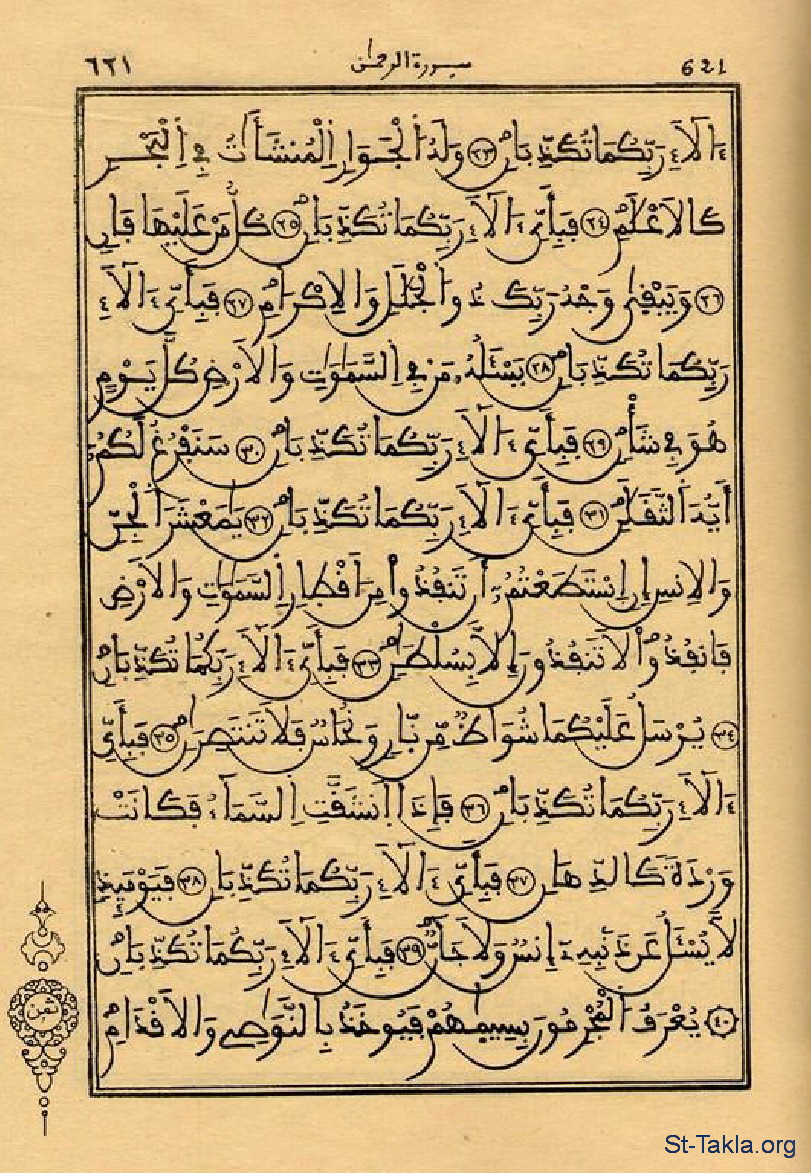 ٦٢١ سورة الرحمن 621
ءَالَآءِ رَبِّكُمَا تُكَذِّبَانِ ٢٣ وَلَهُ الْجَوَارِ الْمُنشَأَاتُ فِي الْبَحْرِ
كَالَاعْلَٰمِ ٢٤ فَبِأَيِّ ءَالَآءِ رَبِّكُمَا تُكَذِّبَانِ ٢٥ كُلُّ مَنْ عَلَيْهَا فَانٍ
٢٦ وَيَبْقَىٰ وَجْهُ رَبِّكَ ذُو الْجَلَٰلِ وَالِاكْرَامِ ٢٧ فَبِأَيِّ ءَالَآءِ
رَبِّكُمَا تُكَذِّبَانِ ٢٨ يَسْـَٔلُهُ مَن فِي السَّمَٰوَٰتِ وَالَارْضِ كُلَّ يَوْمٍ
هُوَ فِي شَأْنٍ ٢٩ فَبِأَيِّ ءَالَآءِ رَبِّكُمَا تُكَذِّبَانِ ٣٠ سَنَفْرُغُ لَكُمُ
أَيُّهَ الثَّقَلَٰنِ ٣١ فَبِأَيِّ ءَالَآءِ رَبِّكُمَا تُكَذِّبَانِ ٣٢ يَٰمَعْشَرَ الْجِنِّ
وَالِانسِ إِنِ اسْتَطَعْتُمُ أَن تَنفُذُوا مِنَ اَقْطَارِ السَّمَٰوَٰتِ وَالَارْضِ
فَانفُذُوا لَا تَنفُذُونَ إِلَّا بِسُلْطَٰنٍ ٣٣ فَبِأَيِّ ءَالَآءِ رَبِّكُمَا تُكَذِّبَانِ
٣٤ يُرْسَلُ عَلَيْكُمَا شُوَاظٌ مِّن نَّارٍ وَنُحَاسٌ فَلَا تَنتَصِرَٰنِ ٣٥ فَبِأَيِّ
ءَالَآءِ رَبِّكُمَا تُكَذِّبَانِ ٣٦ فَإِذَا انشَقَّتِ السَّمَآءُ فَكَانَتْ
وَرْدَةً كَالدِّهَانِ ٣٧ فَبِأَيِّ ءَالَآءِ رَبِّكُمَا تُكَذِّبَانِ ٣٨ فَيَوْمَئِذٍ
لَّا يُسْـَٔلُ عَن ذَنۢبِهِ إِنسٌ وَلَا جَآنٌّ ٣٩ فَبِأَيِّ ءَالَآءِ رَبِّكُمَا تُكَذِّبَانِ
٤٠ يُعْرَفُ الْمُجْرِمُونَ بِسِيمَٰهُمْ فَيُوخَذُ بِالنَّوَٰصِي وَالَاقْدَامِ
ثمن
St-Takla.org